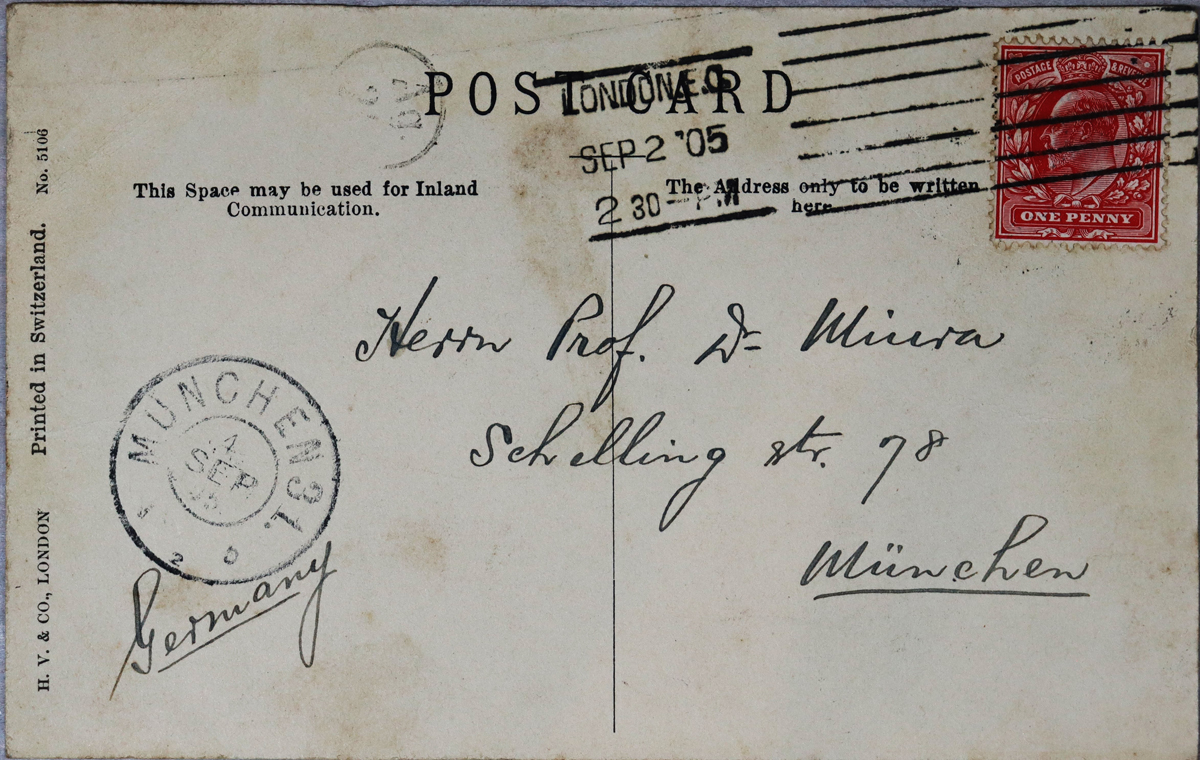 POST CARD
LONDON. E.C.
SEP 2 '05
2 30 - PM
POSTAGE & REVENUE
ONE PENNY
This Space may be used for Inland
Communication.
The Address only to be written
here.
Herrn Prof. Dr Miura
Schelling str. 78
München
MÜNCHEN 31.
SEP
Germany
H. V. & CO., LONDON Printed in Switzerland. No. 5106